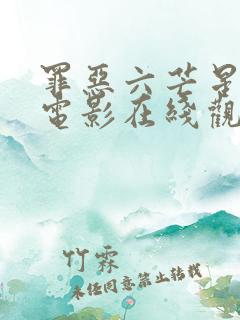 罪惡六芒星
電影在綫觀
竹霖
未经同意禁止转载